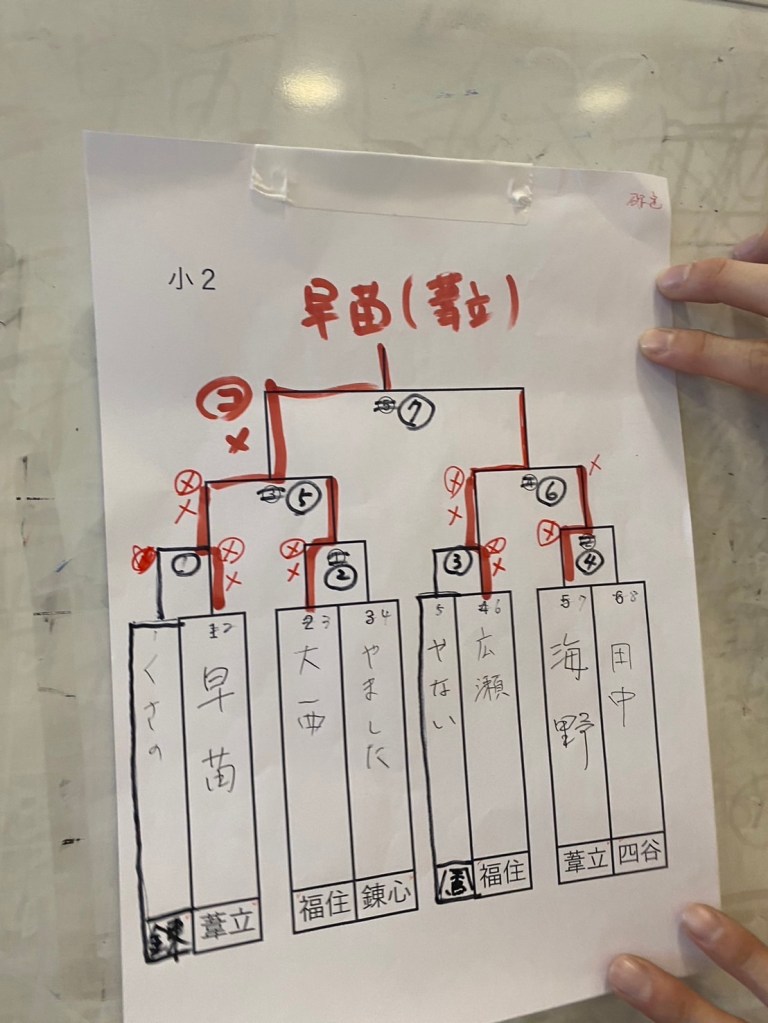 小2
早苗(葦立)
コ
×
⑦
ⓧ
×
⑤
ⓧ
×
⑥
×
①
ⓧ
×
ⓧ
×
②
③
ⓧ
×
ⓧ
④
1 くさの
2 早苗 葦立
3 大西 福住
4 やました 錬心
5 やない
6 広瀬 福住
7 海野 葦立
8 田中 四谷